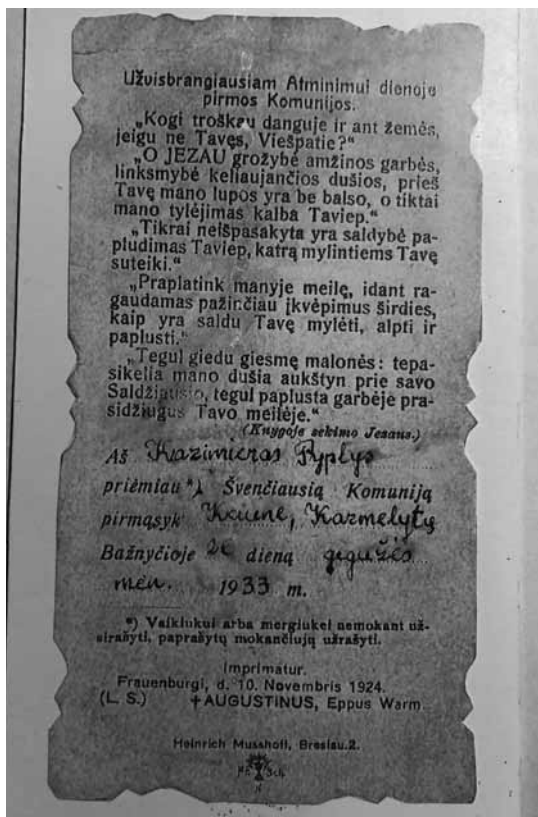 Užvisbrangiausiam Atminimui dienoje
pirmos Komunijos.
„Kogi troškau danguje ir ant žemės,
jeigu ne Tavęs, Viešpatie?“
„O JEZAU grožybė amžinos garbės,
linksmybė keliaujančios dušios, prieš
Tavę mano lupos yra be balso, o tiktai
mano tylėjimas kalba Taviep.“
„Tikrai neišpasakyta yra saldybė pa-
pludimas Taviep, katrą mylintiems Tavę
suteiki.“
„Praplatink manyje meilę, idant ra-
gaudamas pažinčiau įkvėpimus širdies,
kaip yra saldu Tavę mylėti, alpti ir
paplusti.“
„Tegul giedu giesmę malonės: tepa-
sikelia mano dušia aukštyn prie savo
Saldžiausio, tegul paplusta garbėje pra-
sidžiugus Tavo meilėje.“
(Knygoje sekimo Jesaus.)
Aš Kazimieras Pyplys
priėmiau *) Švenčiausią Komuniją
pirmąsyk Kaune, Karmelytų
Bažnyčioje dieną gegužės
men. 1933 m.
*) Vaikiukui arba mergiukei nemokant už-
sirašyti, paprašytų mokančiųjų užrašyti.
Imprimatur.
Frauenburgi, d. 10. Novembris 1924.
(L. S.) †AUGUSTINUS, Eppus Warm.
Heinrich Musshoff, Breslau.2.